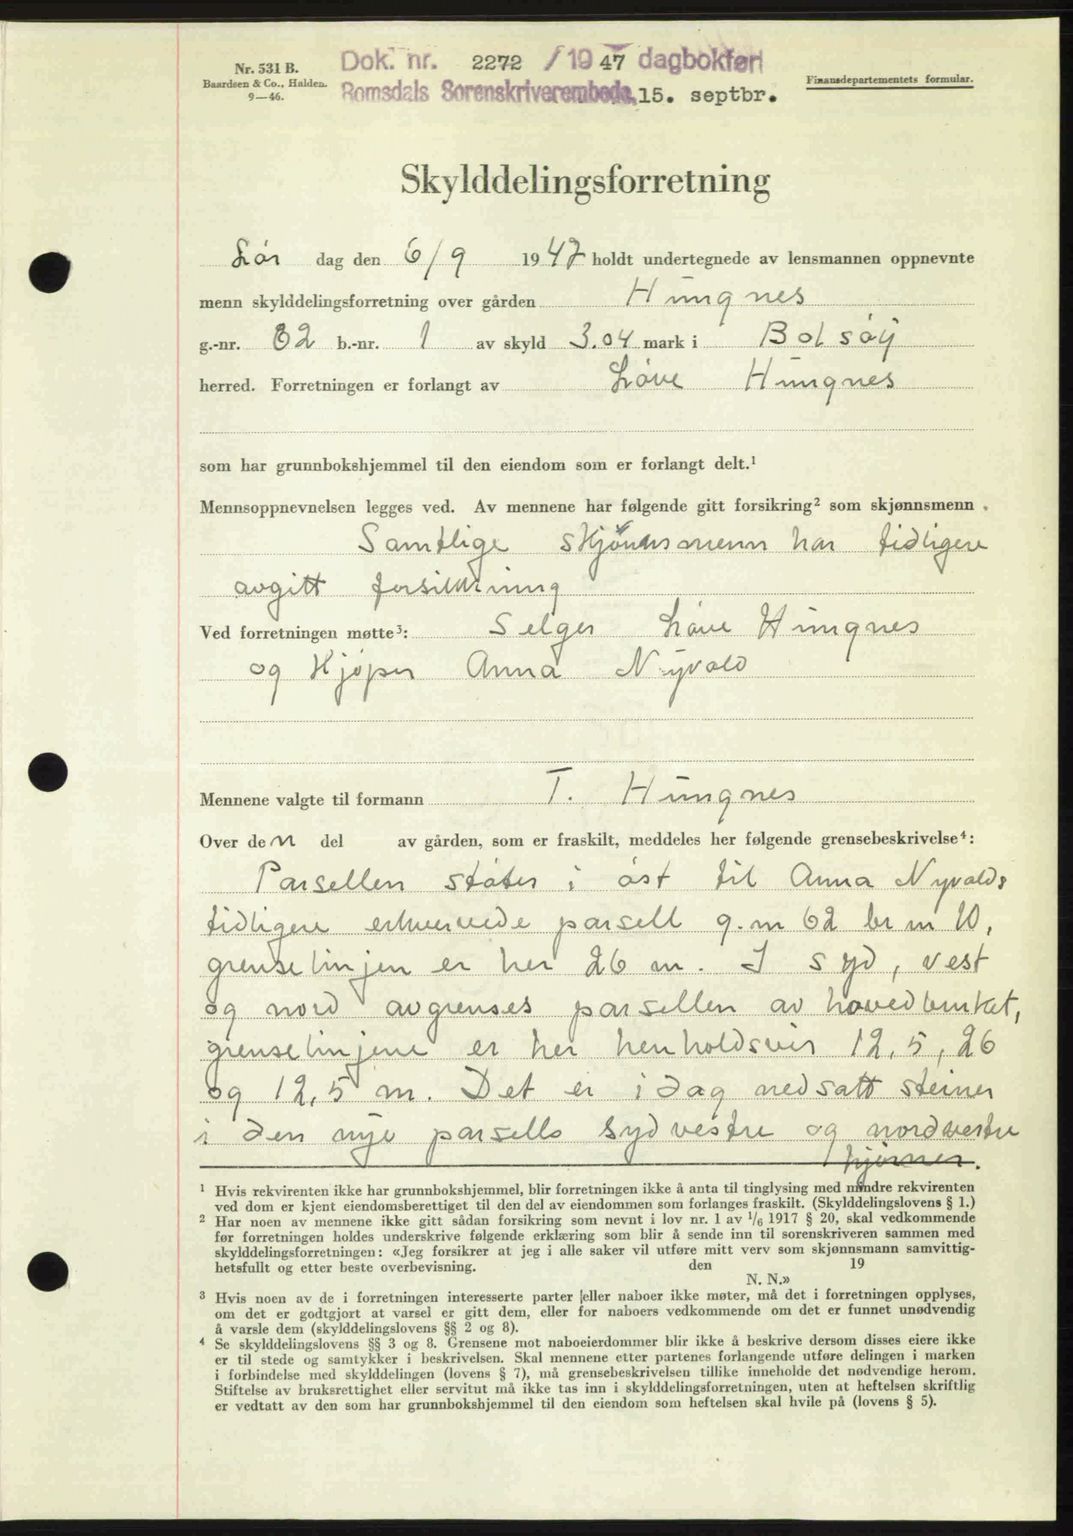 Nr. 531 B.
Baardsen & Co., Halden.
9—46.
Dok. nr. 2272 / 1947 dagbokført
Romsdals Sorenskriverembede, 15. septbr.
Finansdepartementets formular.
Skylddelingsforretning
Lør dag den 6/9 1947 holdt undertegnede av lensmannen oppnevnte
menn skylddelingsforretning over gården Hungnes
g.-nr. 62 b.-nr. 1 av skyld 3.04 mark i Bolsøy
herred. Forretningen er forlangt av Løve Hungnes
som har grunnbokshjemmel til den eiendom som er forlangt delt.¹
Mennsoppnevnelsen legges ved. Av mennene har følgende gitt forsikring² som skjønnsmenn.
Samtlige skjønnsmenn har tidligere
avgitt forsikring
Ved forretningen møtte³: Selger Løve Hungnes
og kjøper Anna Nyvold
Mennene valgte til formann T. Hungnes
Over den del av gården, som er fraskilt, meddeles her følgende grensebeskrivelse⁴:
Parsellen støter i øst til Anna Nyvolds
tidligere erhvervede parsell g.nr 62 br nr 10,
grenselinjen er her 26 m. I syd, vest
og nord avgrenses parsellen av hovedbruket,
grenselinjene er her henholdsvis 12,5, 26
og 12,5 m. Det er idag nedsatt steiner
i den nye parsells sydvestre og nordvestre
hjørner.
¹ Hvis rekvirenten ikke har grunnbokshjemmel, blir forretningen ikke å anta til tinglysing med mindre rekvirenten
ved dom er kjent eiendomsberettiget til den del av eiendommen som forlanges fraskilt. (Skylddelingslovens § 1.)
² Har noen av mennene ikke gitt sådan forsikring som nevnt i lov nr. 1 av 1/6 1917 § 20, skal vedkommende
før forretningen holdes underskrive følgende erklæring som blir å sende inn til sorenskriveren sammen med
skylddelingsforretningen: «Jeg forsikrer at jeg i alle saker vil utføre mitt verv som skjønnsmann samvittig-
hetsfullt og etter beste overbevisning. den 19
N. N.»
³ Hvis noen av de i forretningen interesserte parter eller naboer ikke møter, må det i forretningen opplyses,
om det er godtgjort at varsel er gitt dem, eller for naboers vedkommende om det er funnet unødvendig
å varsle dem (skylddelingslovens §§ 2 og 8).
⁴ Se skylddelingslovens §§ 3 og 8. Grensene mot naboeierdommer blir ikke å beskrive dersom disses eiere ikke
er til stede og samtykker i beskrivelsen. Skal mennene etter partenes forlangende utføre delingen i marken
i forbindelse med skylddelingen (lovens § 7), må grensebeskrivelsen tillike inneholde det nødvendige herom.
Stiftelse av bruksrettighet eller servitut må ikke tas inn i skylddelingsforretningen, uten at heftelsen skriftlig
er vedtatt av den som har grunnbokshjemmel til den eiendom som heftelsen skal hvile på (lovens § 5).